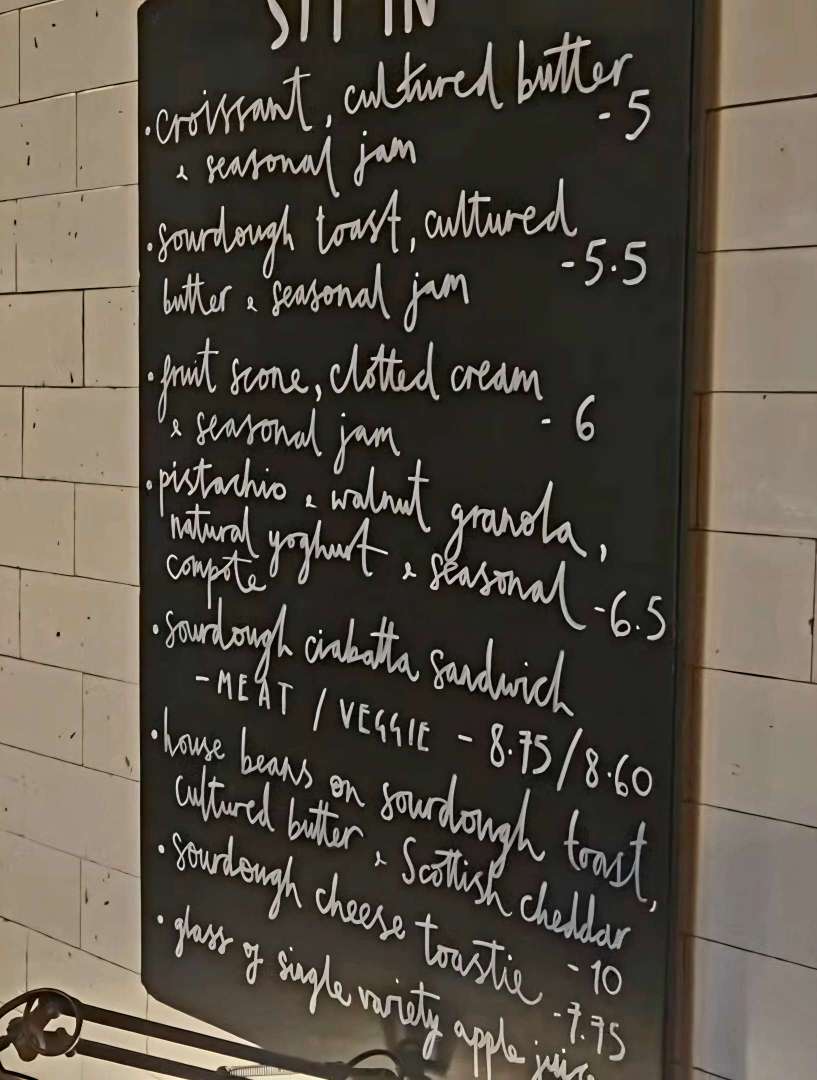 SIT IN
• croissant, cultured butter
& seasonal jam - 5
• sourdough toast, cultured
butter & seasonal jam - 5.5
• fruit scone, clotted cream
& seasonal jam - 6
• pistachio & walnut granola,
natural yoghurt & seasonal
compote - 6.5
• sourdough ciabatta sandwich
- MEAT / VEGGIE - 8.75/8.60
• house beans on sourdough toast,
cultured butter & Scottish cheddar
- 10
• sourdough cheese toastie - 7.75
• glass of single variety apple juice